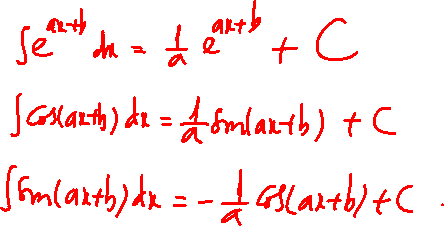 ∫e^(ax+b) dx = 1/a e^(ax+b) + C
∫cos(ax+b) dx = 1/a sin(ax+b) + C
∫sin(ax+b) dx = - 1/a cos(ax+b) + C .